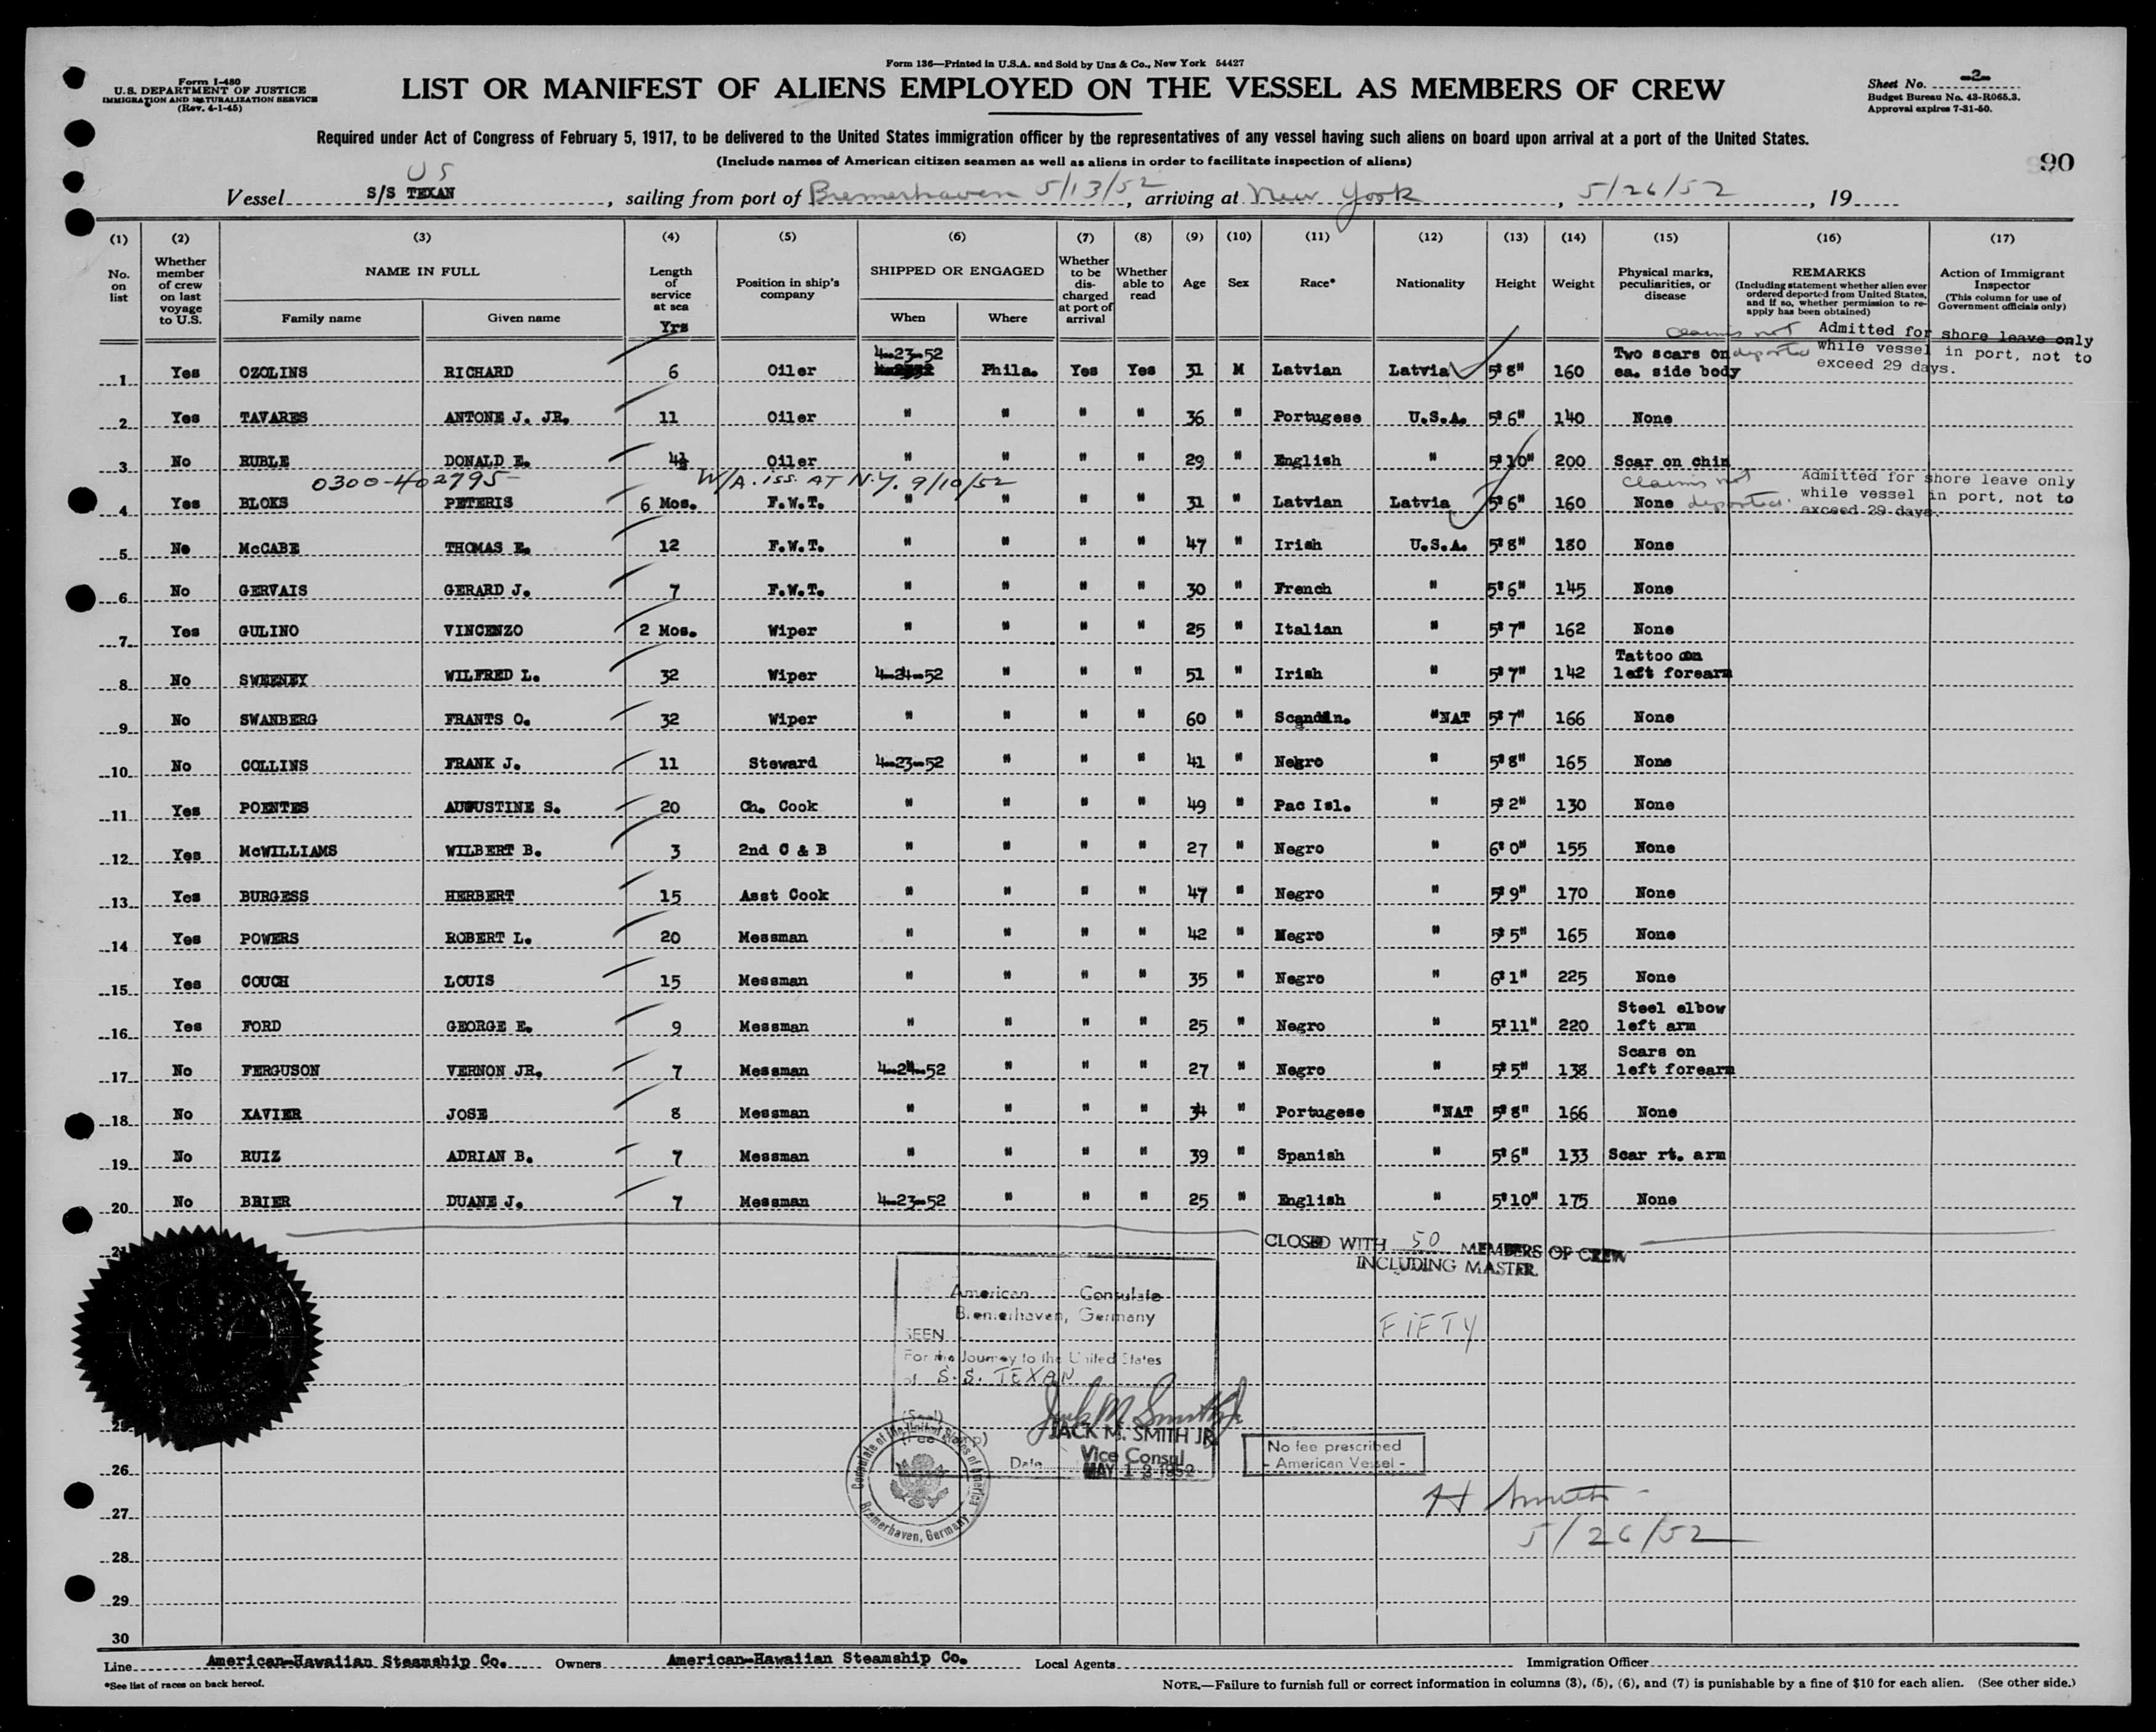 Form 136—Printed in U.S.A. and Sold by Unz & Co., New York 54427
Form I-480
U.S. DEPARTMENT OF JUSTICE
IMMIGRATION AND NATURALIZATION SERVICE
(Rev. 4-1-45)
LIST OR MANIFEST OF ALIENS EMPLOYED ON THE VESSEL AS MEMBERS OF CREW
Sheet No. -2-
Budget Bureau No. 43-R065.3.
Approval expires 7-31-50.
Required under Act of Congress of February 5, 1917, to be delivered to the United States immigration officer by the representatives of any vessel having such aliens on board upon arrival at a port of the United States.
(Include names of American citizen seamen as well as aliens in order to facilitate inspection of aliens)
90
US
Vessel S/S TEXAN, sailing from port of Bremerhaven 5/13/52, arriving at New York, 5/26/52, 19
(1) (2) (3) (4) (5) (6) (7) (8) (9) (10) (11) (12) (13) (14) (15) (16) (17)
No. on list | Whether member of crew on last voyage to U.S. | NAME IN FULL Family name Given name | Length of service at sea Yrs | Position in ship's company | SHIPPED OR ENGAGED When Where | Whether to be discharged at port of arrival | Whether able to read | Age | Sex | Race* | Nationality | Height | Weight | Physical marks, peculiarities, or disease | REMARKS (Including statement whether alien ever ordered deported from United States, and if so, whether permission to re-apply has been obtained) | Action of Immigrant Inspector (This column for use of Government officials only)
1 Yes OZOLINS RICHARD 6 Oiler 4-23-52 Phila. Yes Yes 31 M Latvian Latvia 5'8" 160 Two scars on ea. side body claims not deported Admitted for shore leave only while vessel in port, not to exceed 29 days.
2 Yes TAVARES ANTONE J. JR. 11 Oiler " " " " 36 " Portugese U.S.A. 5'6" 140 None
3 No RUBLE DONALD E. 4½ Oiler " " " " 29 " English " 5'10" 200 Scar on chin
0300-402795 W/A. iss. AT N.Y. 9/10/52
4 Yes BLOKS PETERIS 6 Mos. F.W.T. " " " " 31 " Latvian Latvia 5'6" 160 None claims not deported. Admitted for shore leave only while vessel in port, not to exceed 29 days.
5 No McCABE THOMAS E. 12 F.W.T. " " " " 47 " Irish U.S.A. 5'8" 180 None
6 No GERVAIS GERARD J. 7 F.W.T. " " " " 30 " French " 5'6" 145 None
7 Yes GULINO VINCENZO 2 Mos. Wiper " " " " 25 " Italian " 5'7" 162 None
8 No SWEENEY WILFRED L. 32 Wiper 4-24-52 " " " 51 " Irish " 5'7" 142 Tattoo on left forearm
9 No SWANBERG FRANTS O. 32 Wiper " " " " 60 " Scandin. "NAT 5'7" 166 None
10 No COLLINS FRANK J. 11 Steward 4-23-52 " " " 41 " Negro " 5'8" 165 None
11 Yes POENTES AUGUSTINE S. 20 Ch. Cook " " " " 49 " Pac Isl. " 5'2" 130 None
12 Yes McWILLIAMS WILBERT B. 3 2nd C & B " " " " 27 " Negro " 6'0" 155 None
13 Yes BURGESS HERBERT 15 Asst Cook " " " " 47 " Negro " 5'9" 170 None
14 Yes POWERS ROBERT L. 20 Messman " " " " 42 " Negro " 5'5" 165 None
15 Yes COUCH LOUIS 15 Messman " " " " 35 " Negro " 6'1" 225 None
16 Yes FORD GEORGE E. 9 Messman " " " " 25 " Negro " 5'11" 220 Steel elbow left arm
17 No FERGUSON VERNON JR. 7 Messman 4-24-52 " " " 27 " Negro " 5'5" 138 Scars on left forearm
18 No XAVIER JOSE 8 Messman " " " " 34 " Portugese "NAT 5'8" 166 None
19 No RUIZ ADRIAN B. 7 Messman " " " " 39 " Spanish " 5'6" 133 Scar rt. arm
20 No BRIER DUANE J. 7 Messman 4-23-52 " " " 25 " English " 5'10" 175 None
21
CLOSED WITH 50 MEMBERS OF CREW
INCLUDING MASTER
FIFTY
American Consulate
Bremerhaven, Germany
SEEN
For the Journey to the United States
of S.S. TEXAN
(Seal)
Jack M. Smith Jr
JACK M. SMITH JR
Vice Consul
Date MAY 12 1952
Consulate of the United States of America
Bremerhaven, Germany
No fee prescribed
- American Vessel -
H Smith
5/26/52
26
27
28
29
30
Line American-Hawaiian Steamship Co. Owners American-Hawaiian Steamship Co. Local Agents Immigration Officer
*See list of races on back hereof.
NOTE.—Failure to furnish full or correct information in columns (3), (5), (6), and (7) is punishable by a fine of $10 for each alien. (See other side.)